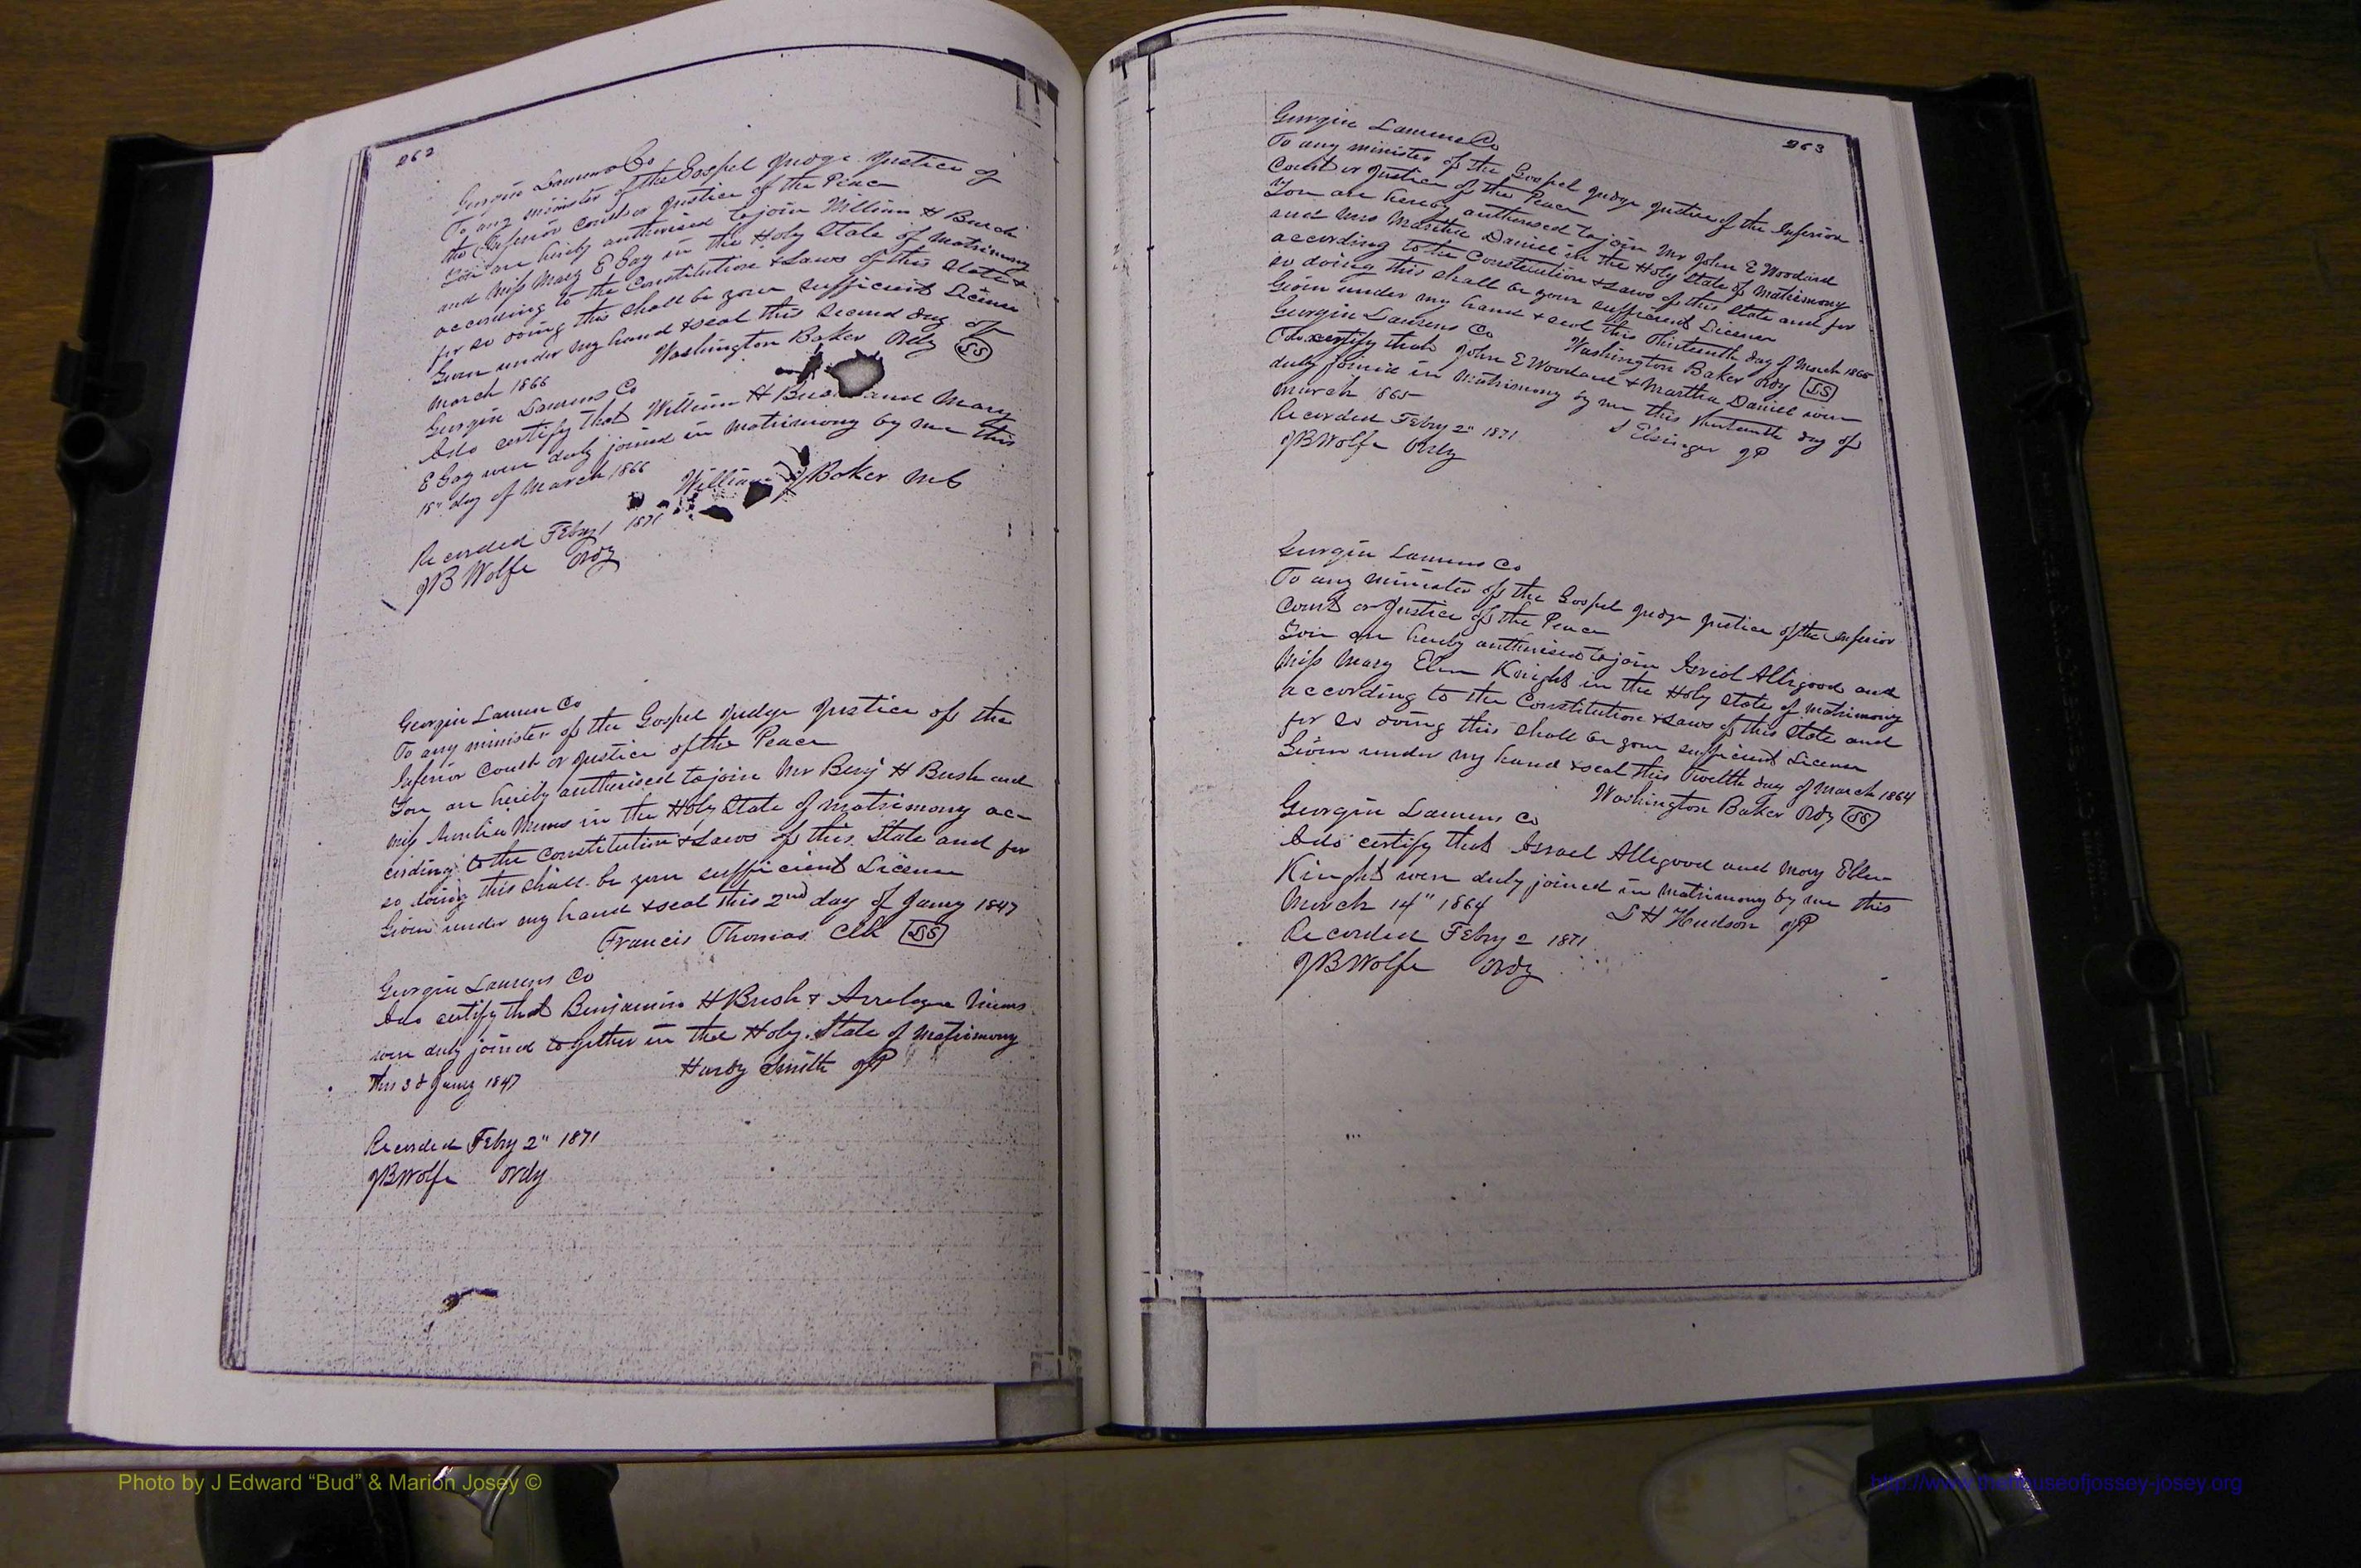 262
Georgia Laurens Co
To any minister of the Gospel Judge Justice of
the Inferior Court or Justice of the Peace
You are hereby authorised to join William H Burch
and Miss Mary E Gay in the Holy State of Matrimony
according to the Constitution & Laws of this State &
for so doing this shall be your sufficient License
Given under my hand & seal this second day of
March 1866 Washington Baker Ordy LS
Georgia Laurens Co
I do certify that William H and Mary
E Gay were duly joined in matrimony by me this
15" day of March 1866 William J Baker MG
Recorded Febry 1871
JB Wolfe Ordy
Georgia Laurens Co
To any minister of the Gospel Judge Justice of the
Inferior Court or Justice of the Peace
You are hereby authorised to join Mr Benj H Bush and
Miss Mims in the Holy State of Matrimony ac-
cording to the Constitution & Laws of this State and for
so doing this shall be your sufficient License
Given under my hand & seal this 2nd day of Jany 1847
Francis Thomas Clk LS
Georgia Laurens Co
I do certify that Benjamin H Bush & Mims
were duly joined together in the Holy State of Matrimony
this 3d Jany 1847 Hardy Smith JP
Recorded Febry 2" 1871
JB Wolfe Ordy
263
Georgia Laurens Co
To any minister of the Gospel Judge Justice of the Inferior
Court or Justice of the Peace
You are hereby authorised to join Mr John E Woodard
and Mrs Martha Daniel in the Holy State of Matrimony
according to the Constitution & Laws of this State and for
so doing this shall be your sufficient License
Given under my hand & seal this Thirteenth day of March 1865
Georgia Laurens Co Washington Baker Ordy LS
I do certify that John E Woodard & Martha Daniel were
duly joined in Matrimony by me this thirteenth day of
March 1865 JP
Recorded Febry 2" 1871
JB Wolfe Ordy
Georgia Laurens Co
To any minister of the Gospel Judge Justice of the Inferior
Court or Justice of the Peace
You are hereby authorised to join Isreal Alligood and
Miss Mary Ellen Knight in the Holy State of Matrimony
according to the Constitution & Laws of this State and
for so doing this shall be your sufficient License
Given under my hand & seal this Twelfth day of March 1864
Washington Baker Ordy LS
Georgia Laurens Co
I do certify that Israel Alligood and Mary Ellen
Knight were duly joined in Matrimony by me this
March 14" 1864 L H Hudson JP
Recorded Febry 2 1871
JB Wolfe Ordy
Photo by J Edward “Bud” & Marion Josey ©
http://www.thehouseofjossey-josey.org